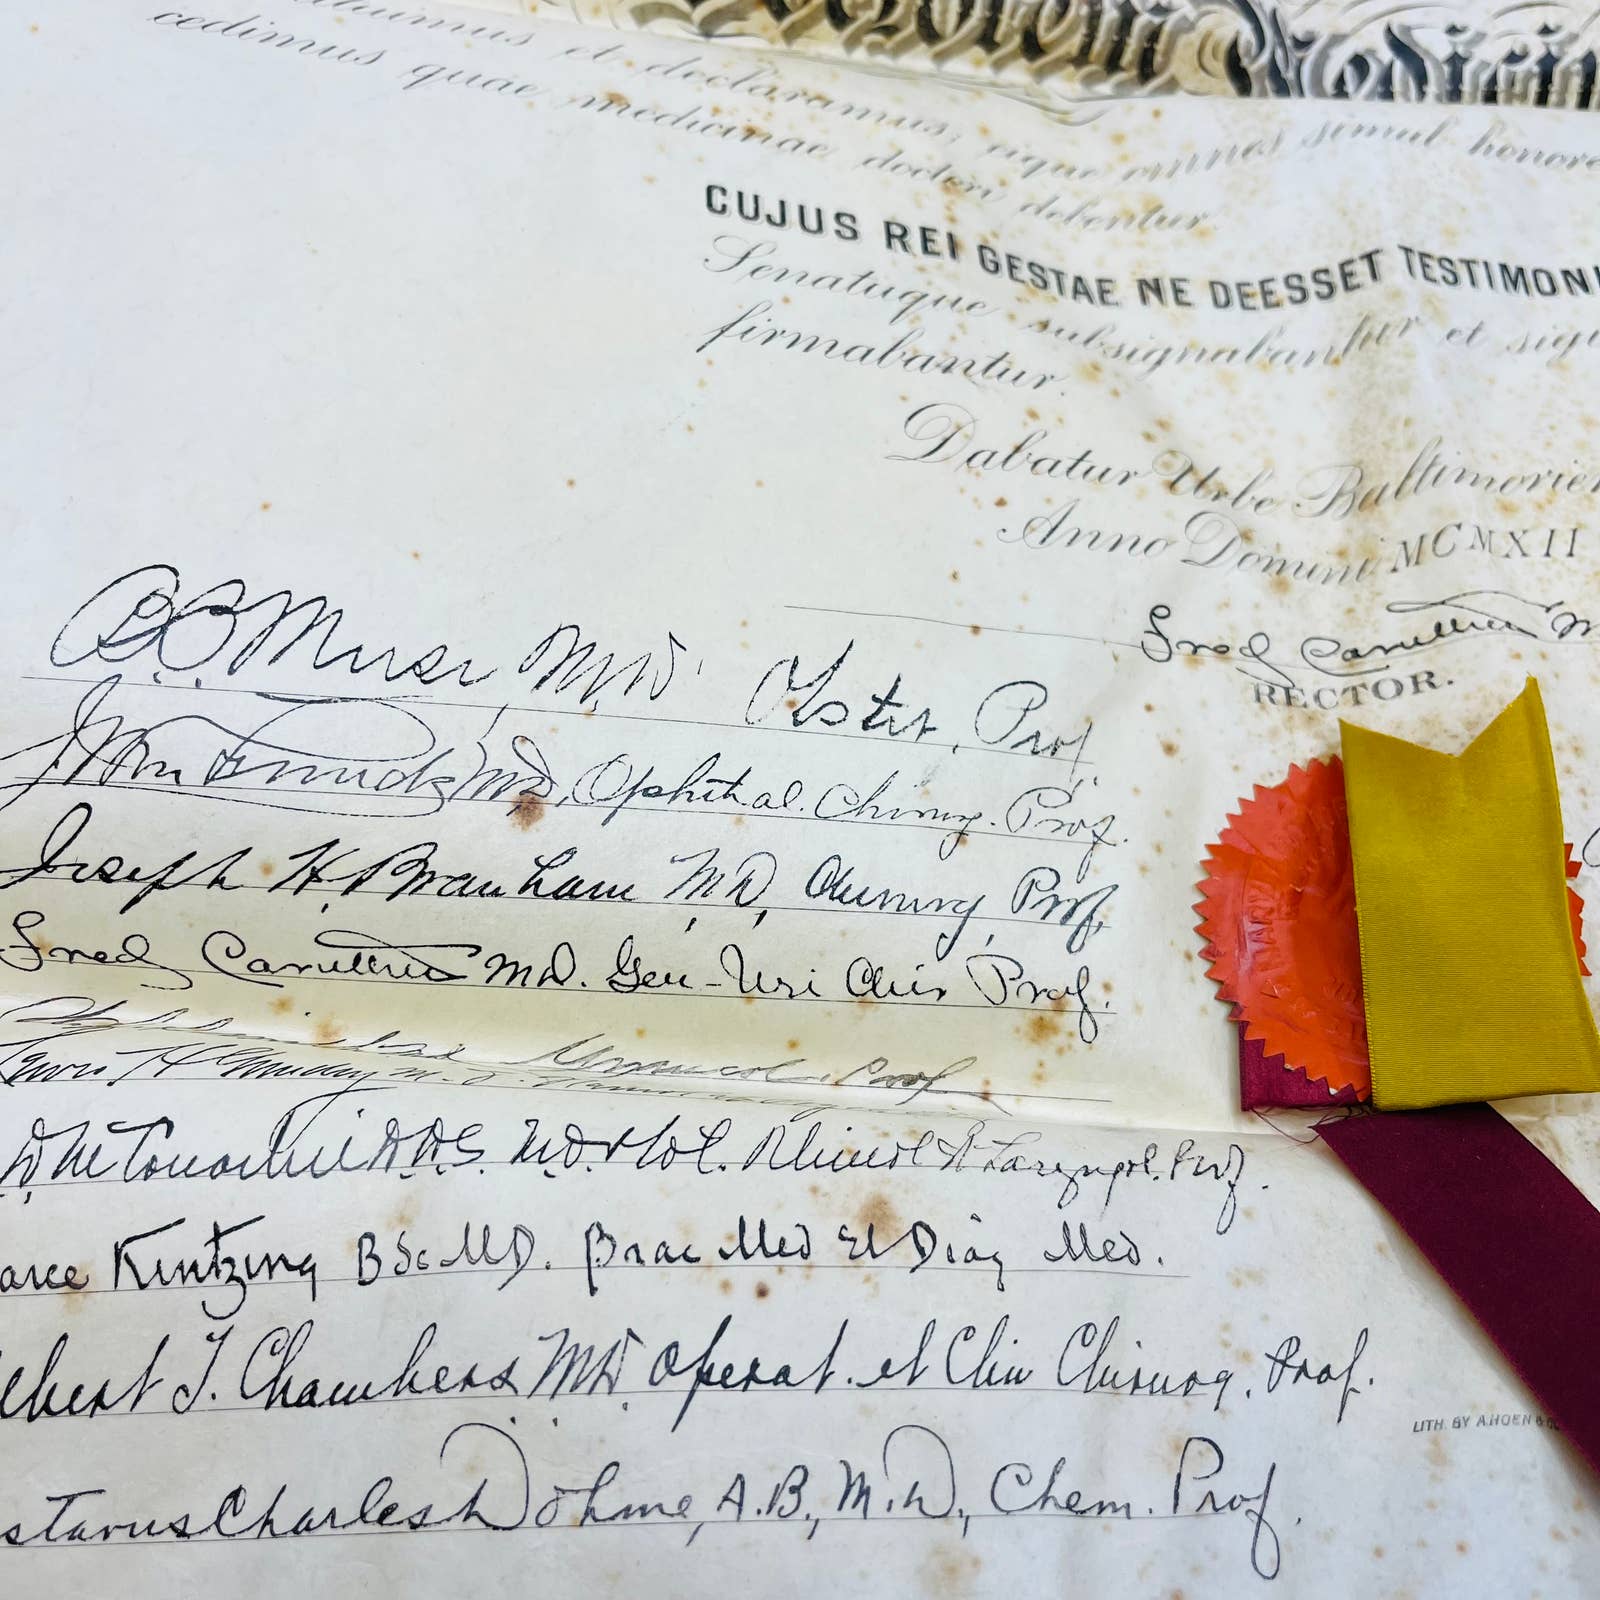 Medicin
et declaramus, eique omnes simul honore
cedimus quae medicinae doctori debentur.
CUJUS REI GESTAE NE DEESSET TESTIMONI
Senatuque subsignabantur et sig
firmabantur.
Dabatur Urbe Baltimorien
Anno Domini MCMXII
Fred Caruthers M
RECTOR.
M.D. Obstet. Prof.
M.D., Ophthal. Chirurg. Prof.
Joseph H. Branham M.D., Chirurg. Prof.
Fred Caruthers M.D. Gen-Uri Chir Prof.
Prof
M.D.
D.D.S. M.D. Rhinol & Laryngol. Prof.
Kintzing B Sc. M.D. Prac Med Et Diag Med.
lbert T. Chambers M.D. Operat. et Clin Chirurg. Prof.
LITH. BY A.HOEN &
stavus Charles Dohme, A.B., M.D., Chem. Prof.